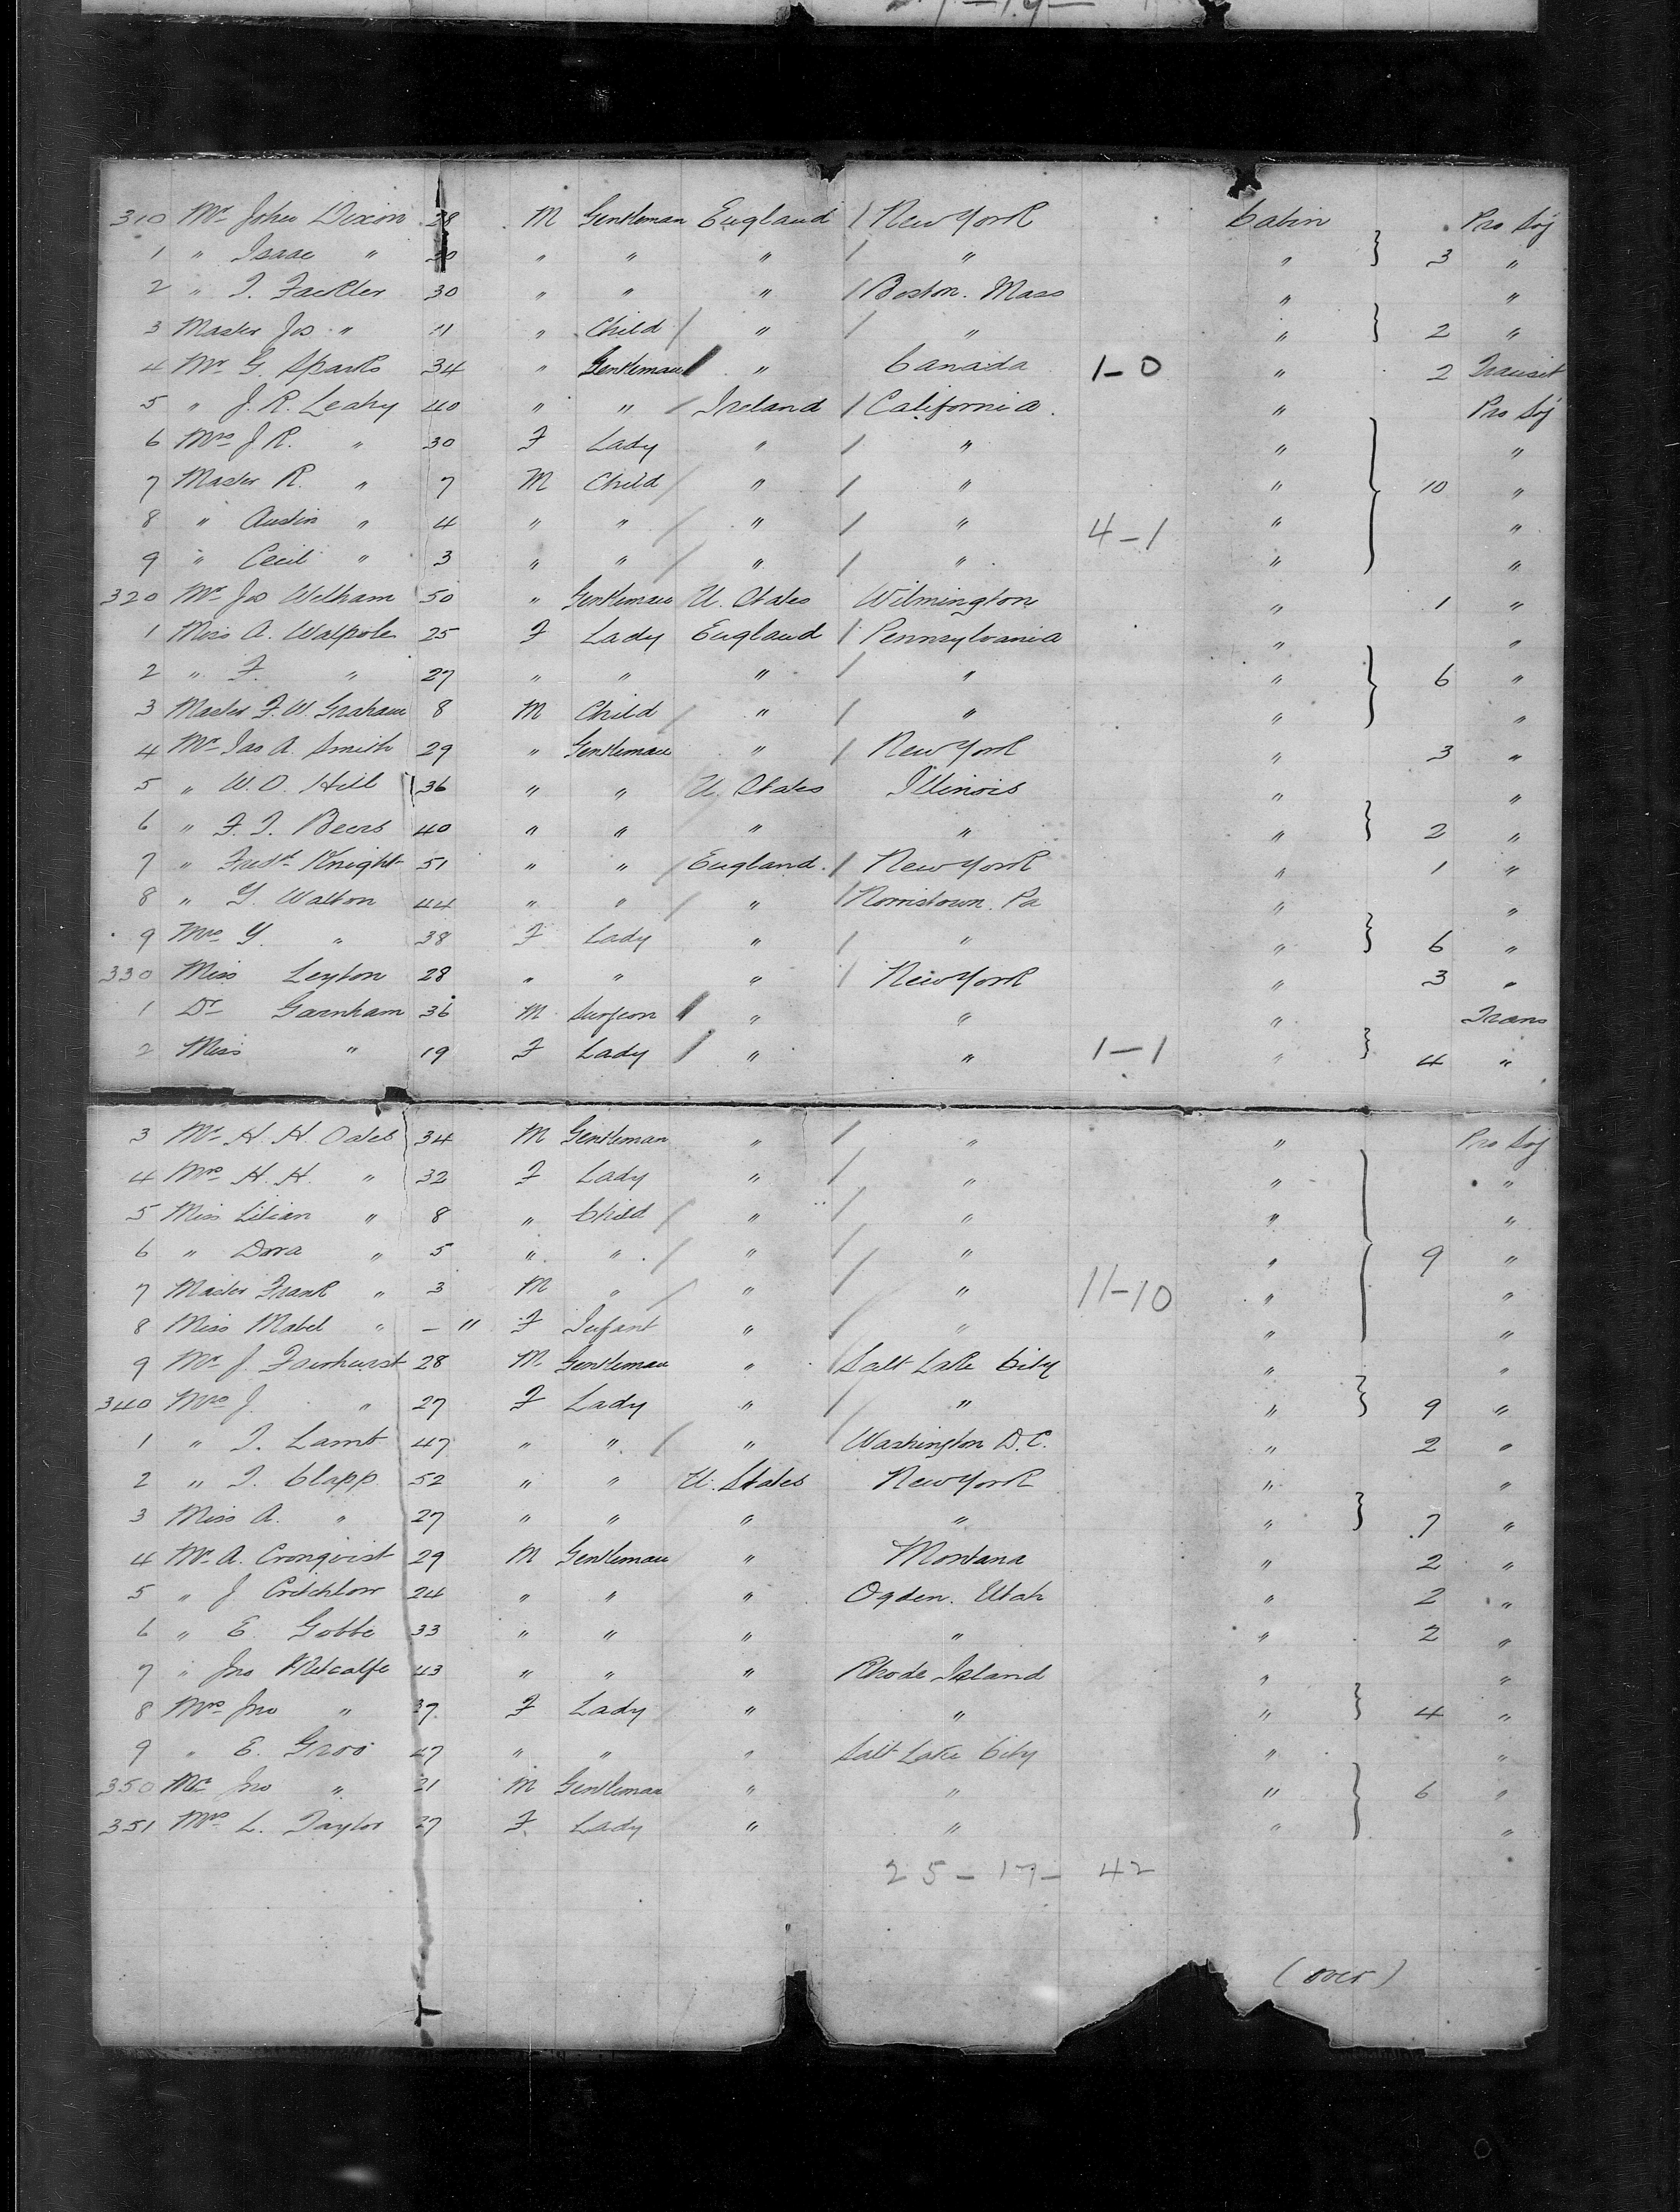 310 Mr John Dixon 28 M Gentleman England / New York Cabin Pro Soj
1 " Isaac " 30 " " " / " " } 3 "
2 " T. Fackler 30 " " " / Boston. Mass " "
3 Master Jos " 11 " Child / " / " " } 2 "
4 Mr G. Sparks 34 " Gentleman / " Canada 1-0 " 2 Transit
5 " J. R. Leahy 40 " " / Ireland / California. " Pro Soj
6 Mrs J R. " 30 F Lady " / " " "
7 Master R. " 7 M Child / " / " " } 10 "
8 " Austin " 4 " " / " / " 4-1 " "
9 " Cecil " 3 " " / " / " " "
320 Mr Jos Welham 50 " Gentleman U. States Wilmington " 1 "
1 Miss A. Walpole 25 F Lady England / Pennsylvania " "
2 " F. " 27 " " " / " " } 6 "
3 Master F. W. Graham 8 M Child / " / " " "
4 Mr Jas A. Smith 29 " Gentleman " / New York " 3 "
5 " W. O. Hill 36 " " U. States Illinois " "
6 " F. T. Beers 40 " " " " " } 2 "
7 " Fredk Knight 51 " " / England. / New York " 1 "
8 " Y. Walton 44 " " / " / Norristown. Pa " "
9 Mrs Y. " 38 F Lady " / " " } 6 "
330 Miss Leyton 28 " " " / New York " 3 "
1 Dr Garnham 36 M Surgeon / " " " Trans
2 Miss " 19 F Lady / " " 1-1 " } 4 "
3 Mr H. H. Oates 34 M Gentleman " / " " Pro Soj
4 Mrs H. H. " 32 F Lady " / " " "
5 Miss Lilian " 8 " Child / " / " " "
6 " Dora " 5 " " / " / " " } 9 "
7 Master Frank " 3 M " / " / " 11-10 " "
8 Miss Mabel " - " F Infant " / " " "
9 Mr J. Fairhurst 28 M Gentleman " / Salt Lake City " "
340 Mrs J. " 27 F Lady " / " " } 9 "
1 " T. Lamb 47 " " / " / Washington D.C. " 2 "
2 " T. Clapp 52 " " U. States New York " "
3 Miss A. " 27 " " " " " } 7 "
4 Mr A. Cronqvist 29 M Gentleman " Montana " 2 "
5 " J Critchlow 24 " " " Ogden. Utah " 2 "
6 " E. Gobbe 33 " " " " " 2 "
7 " Jno Metcalfe 43 " " " Rhode Island " "
8 Mrs Jno " 37 F Lady " " " } 4 "
9 " E. Groo 47 " " " Salt Lake City " "
350 Mr Jno " 21 M Gentleman " " " } 6 "
351 Mrs L. Taylor 27 F Lady " " " "
25-17- 42
(over)